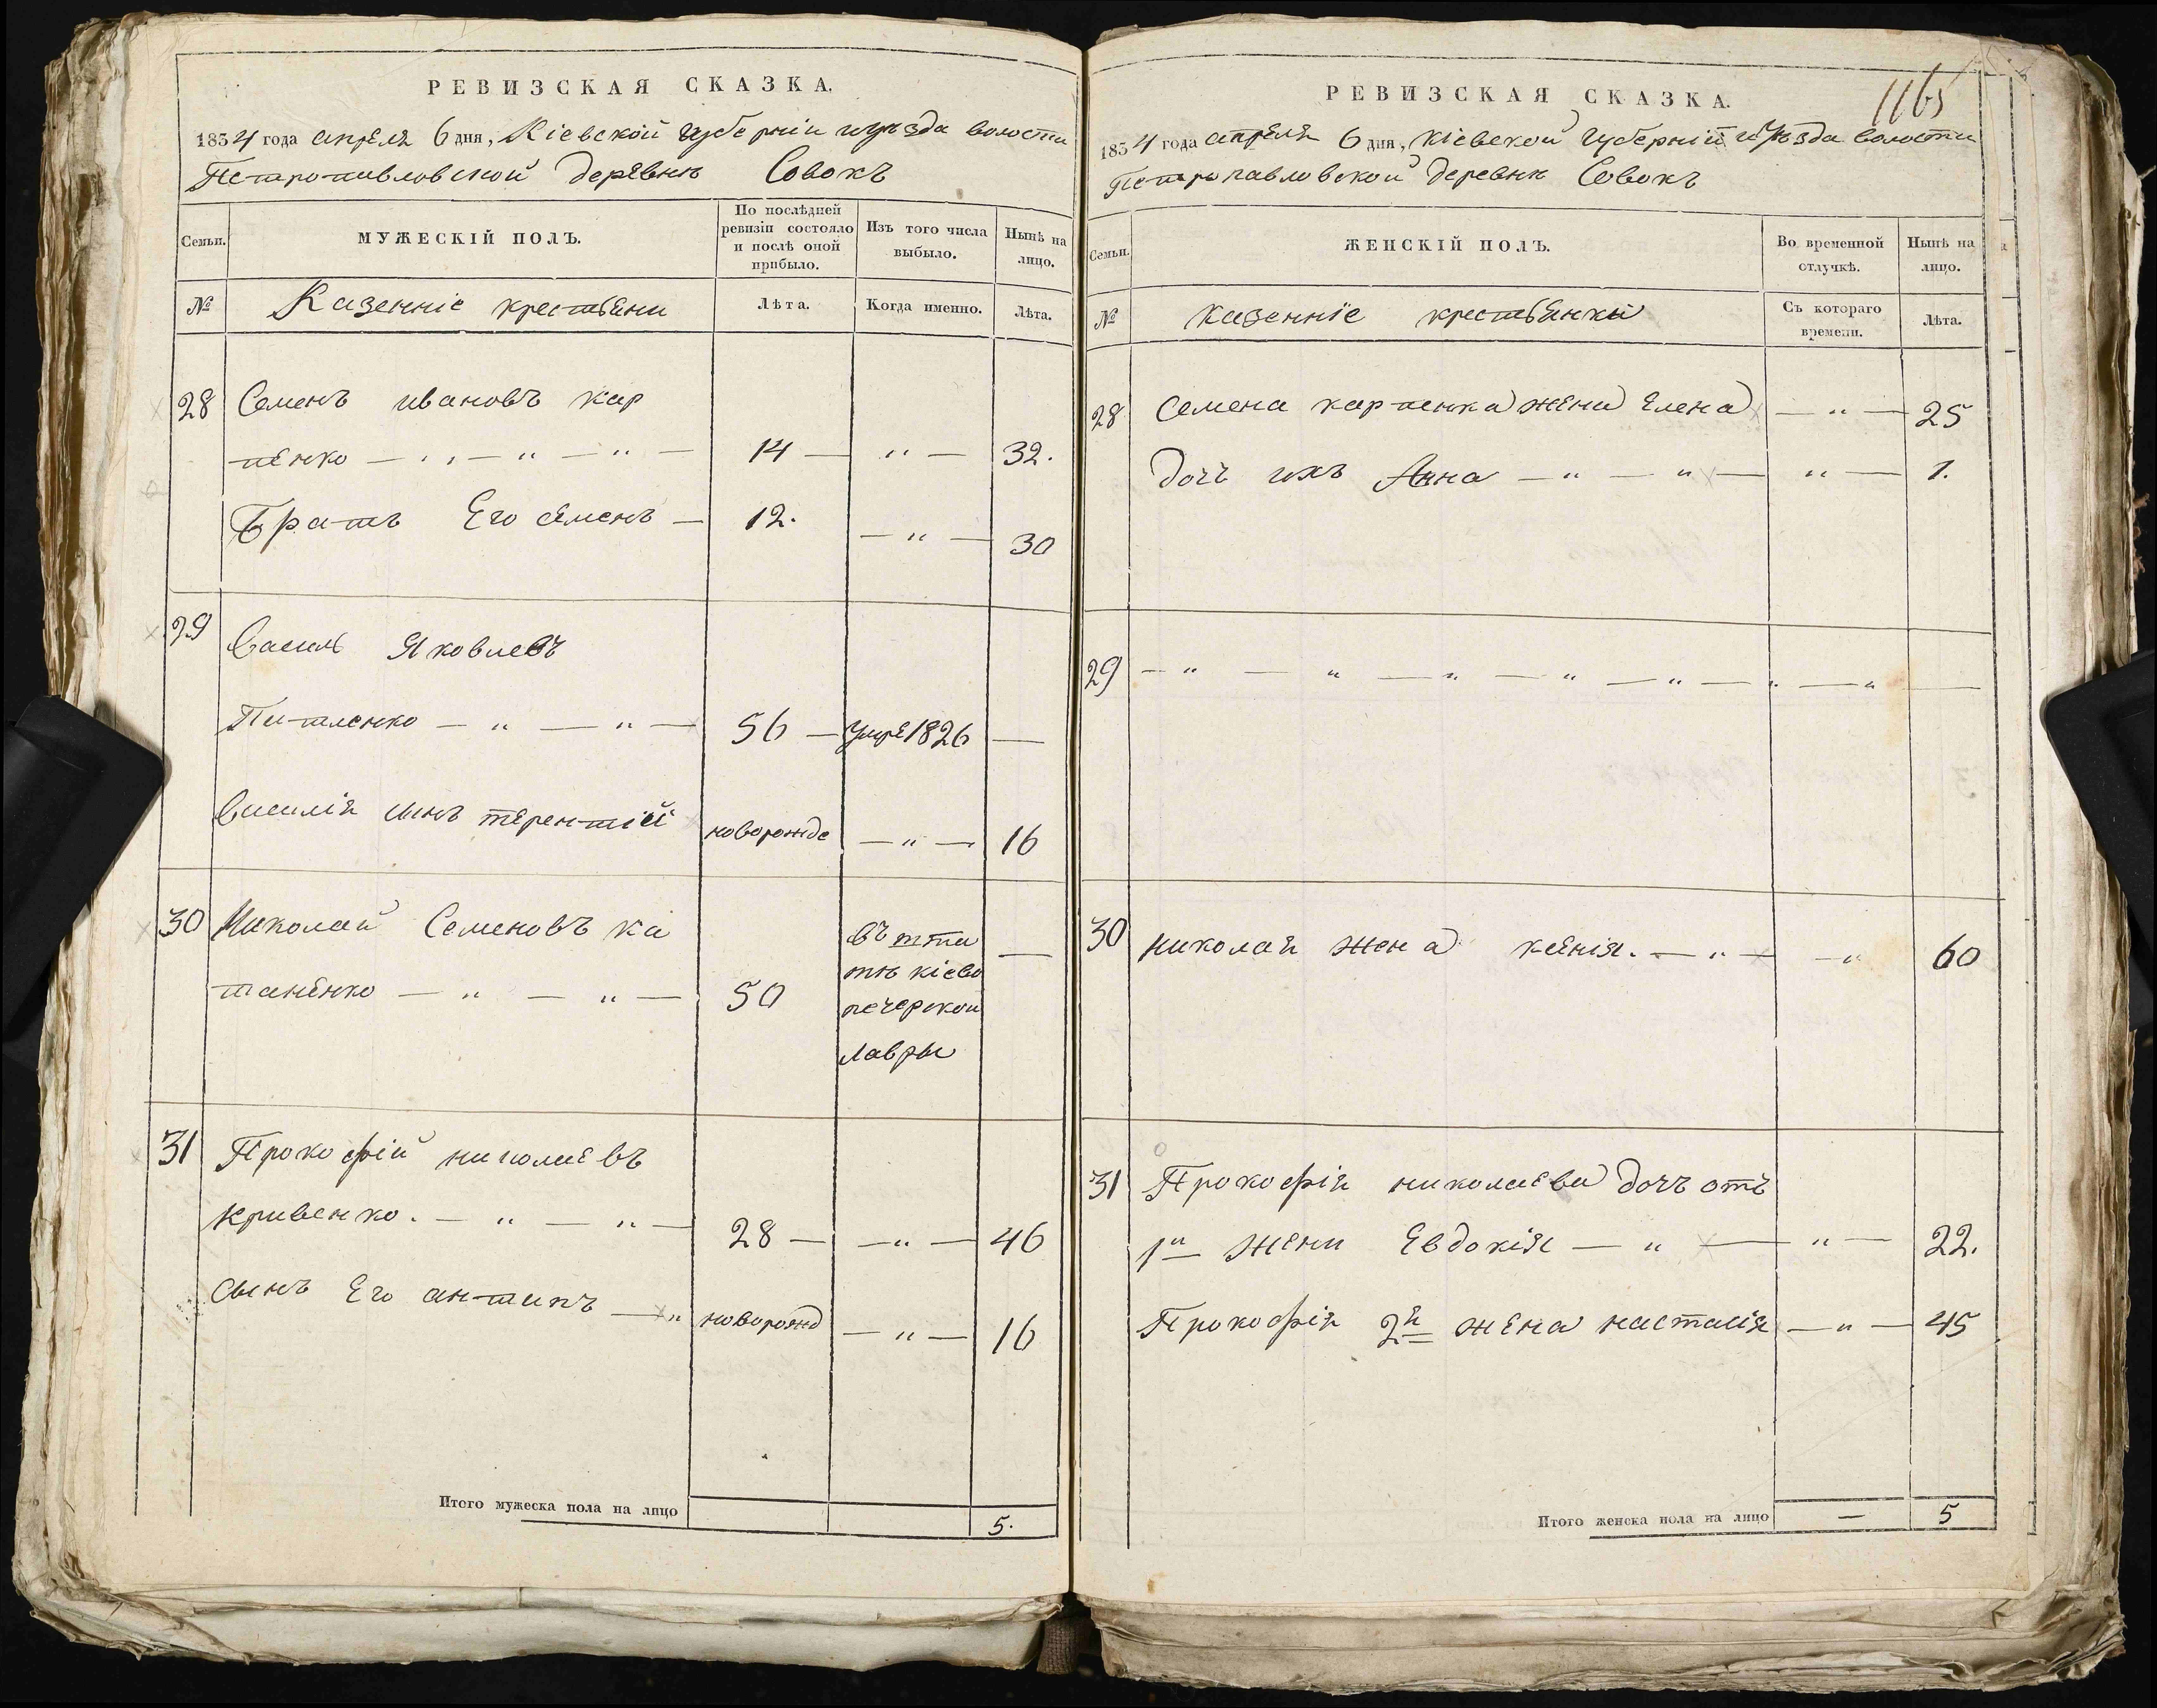 РЕВИЗСКАЯ СКАЗКА.
1834 года апреля 6 дня, Кіевской губерніи и уезда волости
Петропавловской деревнѣ Совокъ
Семьи.
МУЖЕСКІЙ ПОЛЪ.
По послѣдней ревизіи состояло и послѣ оной прибыло.
Изъ того числа выбыло.
Нынѣ на лицо.
№
Казенніе крестьяни
Лѣта.
Когда именно.
Лѣта.
28 Семенъ ивановъ кар
пенко — „ — „ — „ — 14 — „ — 32.
Братъ Его семенъ — 12. — „ — 30
29 Василь Яковлевъ
Питаленко — „ — „ — 56 — умре 1826 —
Василія синъ терентий новорожде — „ — 16
30 Николай Семеновъ ка
таненко — „ — „ — 50
кіево
печерской
лавры
—
31 Прокофій николаевъ
кривенко. — „ — „ — 28 — — „ — 46
сынъ Его антипъ — „ новорожд — „ — 16
Итого мужеска пола на лицо 5.
1165
РЕВИЗСКАЯ СКАЗКА.
1834 года апреля 6 дня, Кіевской Губерній и уѣзда волости
Петропавловской деревнѣ Совокъ
Семьи.
ЖЕНСКІЙ ПОЛЪ.
Во временной отлучкѣ.
Нынѣ на лицо.
№
Казенніе крестьянки
Съ котораго времени.
Лѣта.
28 Семена карпенка жена Елена — „ — 25
дочь ихъ Анна — „ — „ — „ — 1.
29 — „ — „ — „ — „ — „ — „ — „ —
30 николая жена ксенія. — „ — — „ 60
31 Прокофія николаева дочъ отъ
1й жени Евдокія — „ — „ — 22.
Прокофія 2я жена настасія — „ — 45
Итого женска пола на лицо — 5